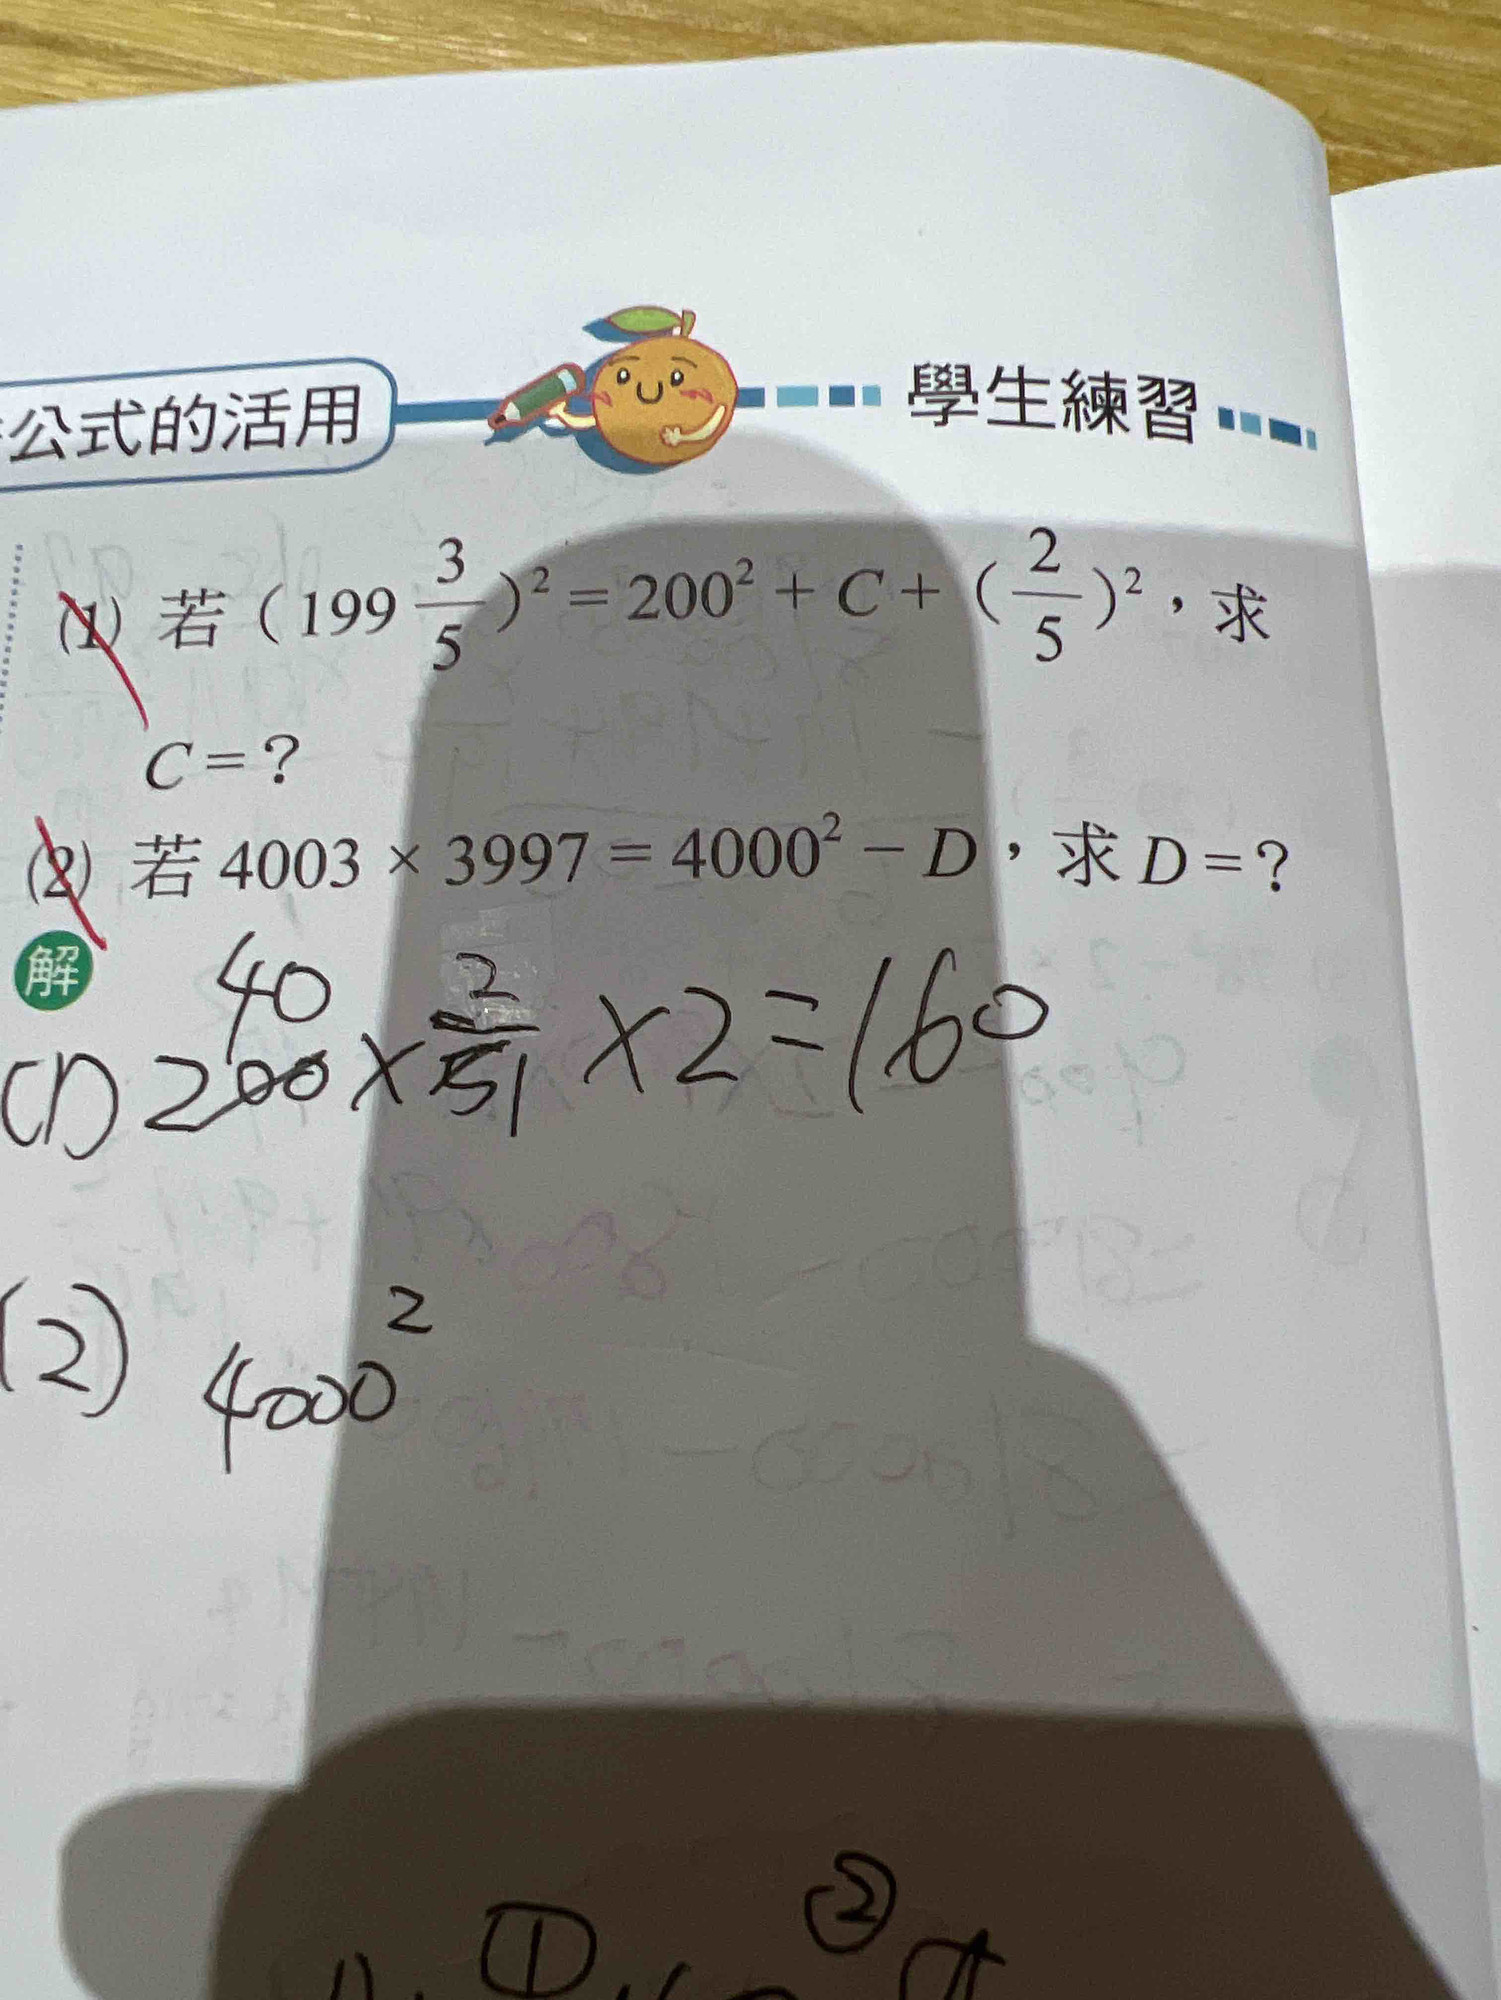 公式的活用 學生練習
(1) 若 (199 3/5)² = 200² + C + (2/5)²，求
C = ?
(2) 若 4003 × 3997 = 4000² − D，求 D = ?
解
40
(1) 200 × 2/5 1 × 2 = 160
(2) 4000²
① ②